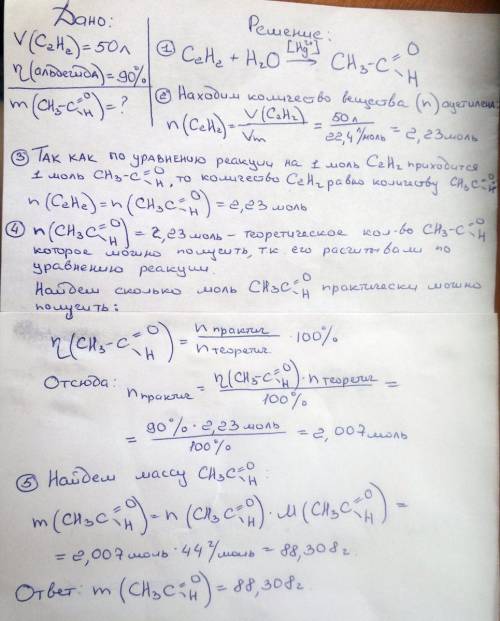 Дано:
V(C₂H₂)=50л
η(альдегида)=90%
m(CH₃-C(=O)H)=?
Решение:
① C₂H₂ + H₂O →[Hg²⁺] CH₃-C(=O)H
② Находим количество вещества (n) ацетилена:
n(C₂H₂)=V(C₂H₂)/Vm = 50л/22,4л/моль = 2,23моль
③ Так как по уравнению реакции на 1 моль C₂H₂ приходится
1 моль CH₃-C(=O)H, то количество C₂H₂ равно количеству CH₃C(=O)H
n(C₂H₂)=n(CH₃-C(=O)H)=2,23моль
④ n(CH₃C(=O)H)=2,23моль – теоретическое кол-во CH₃-C(=O)H
которое можно получить, т.к. его расчитывали по
уравнению реакции.
Найдем сколько моль CH₃C(=O)H практически можно
получить:
η(CH₃-C(=O)H)=n практич/n теоретич · 100%
Отсюда: n практич = η(CH₃C(=O)H)·n теоретич/100% =
= 90%·2,23моль/100% = 2,007моль
⑤ Найдем массу CH₃C(=O)H:
m(CH₃C(=O)H)=n(CH₃C(=O)H)·M(CH₃C(=O)H)=
=2,007моль·44г/моль=88,308г.
Ответ: m(CH₃C(=O)H)=88,308г.